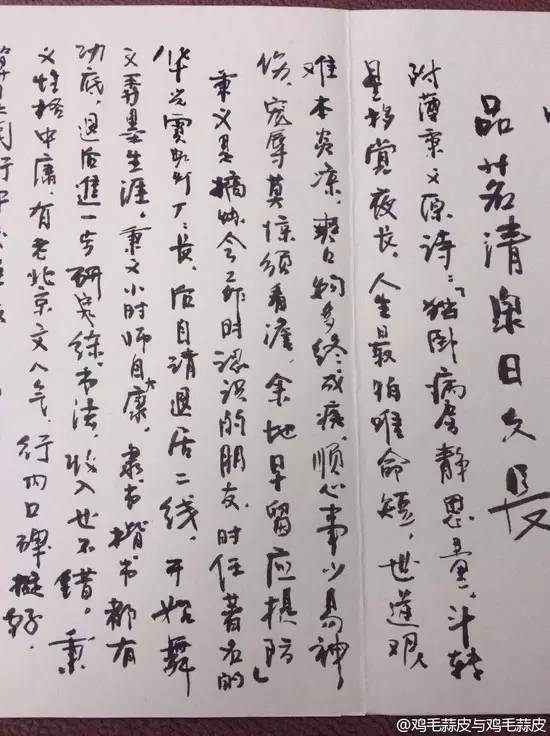 品茗清泉日久长
附薄秉义原诗:「独卧病房静思量,斗转
星移赏夜长。人生最怕唯命短,世道艰
难本炎凉。爽口物多终成疾,顺心事少易神
伤。宠辱莫惊须看澹,余地早留应提防」
秉义是工作时认识的朋友,时任著名的
华光厂厂长,后自请退居二线,开始舞
文弄墨生涯。秉义小时师自大康,隶书楷书都有
功底,退后进一步研究练书法,收入也不错。秉
义性格中庸,有老北京文人气,行内口碑挺好.
@鸡毛蒜皮与鸡毛蒜皮